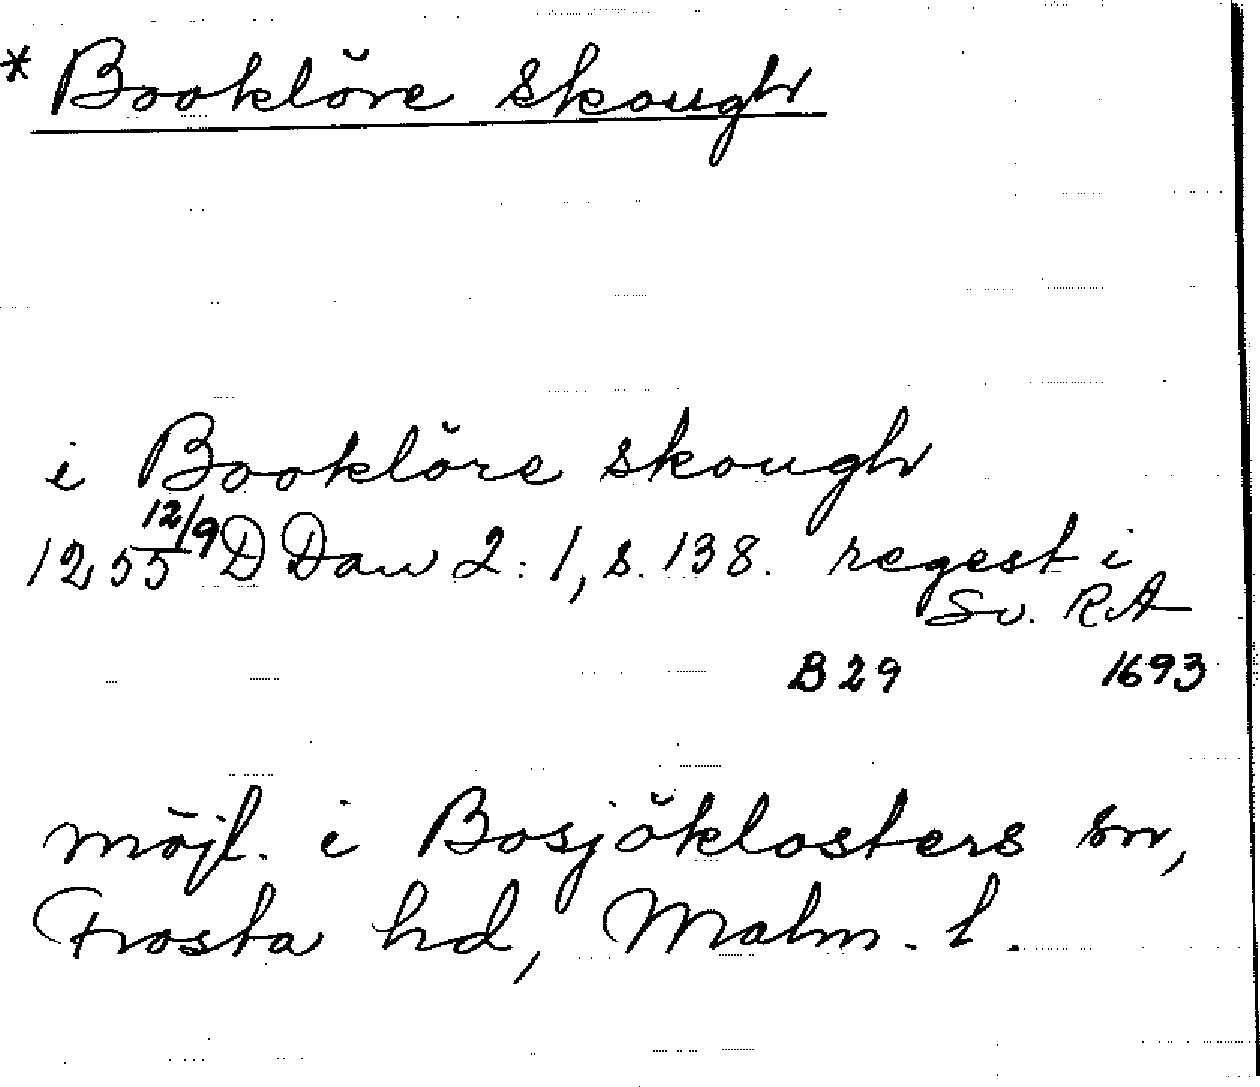 * Booklöre skough
i Booklöre skough
1255 12/9 D Dan 2:1, s. 138. regest i
Sv. RA
B 29 1693
möjl. i Bosjöklosters sn,
Frosta hd, Malm. l.